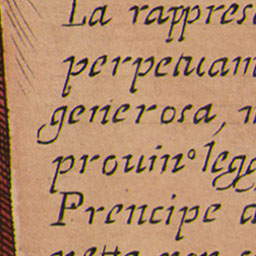 La rappres
perpetuam
generosa,
prouin° legg
Prencipe